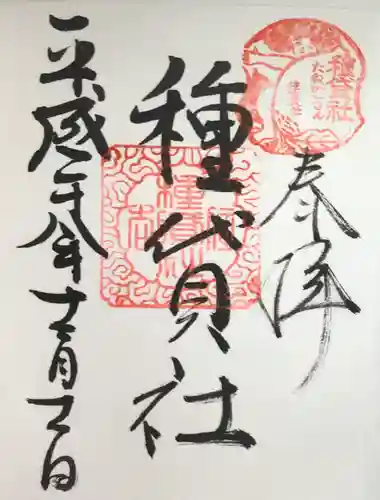 奉拝
種貸社
平成二十八年十二月十一日
種貸社
たねかしさん